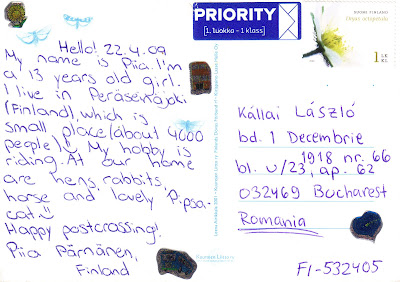 Hello! 22.4.09
My name is Piia. I'm
a 13 years old girl.
I live in Peräseinäjoki
(Finland), which is
small place (about 4000
people) My hobby is
riding. At our home
are hens, rabbits,
horse and lovely Pipsa-
cat.
Happy postcrossing!
Piia Pärnänen,
Finland
PRIORITY
[1. luokka - 1 klass]
SUOMI FINLAND
1 LK
KL
Kállai László
bd. 1 Decembrie
1918 nr. 66
bl. U/23, ap. 62
032469 Bucharest
Romania
FI-532405